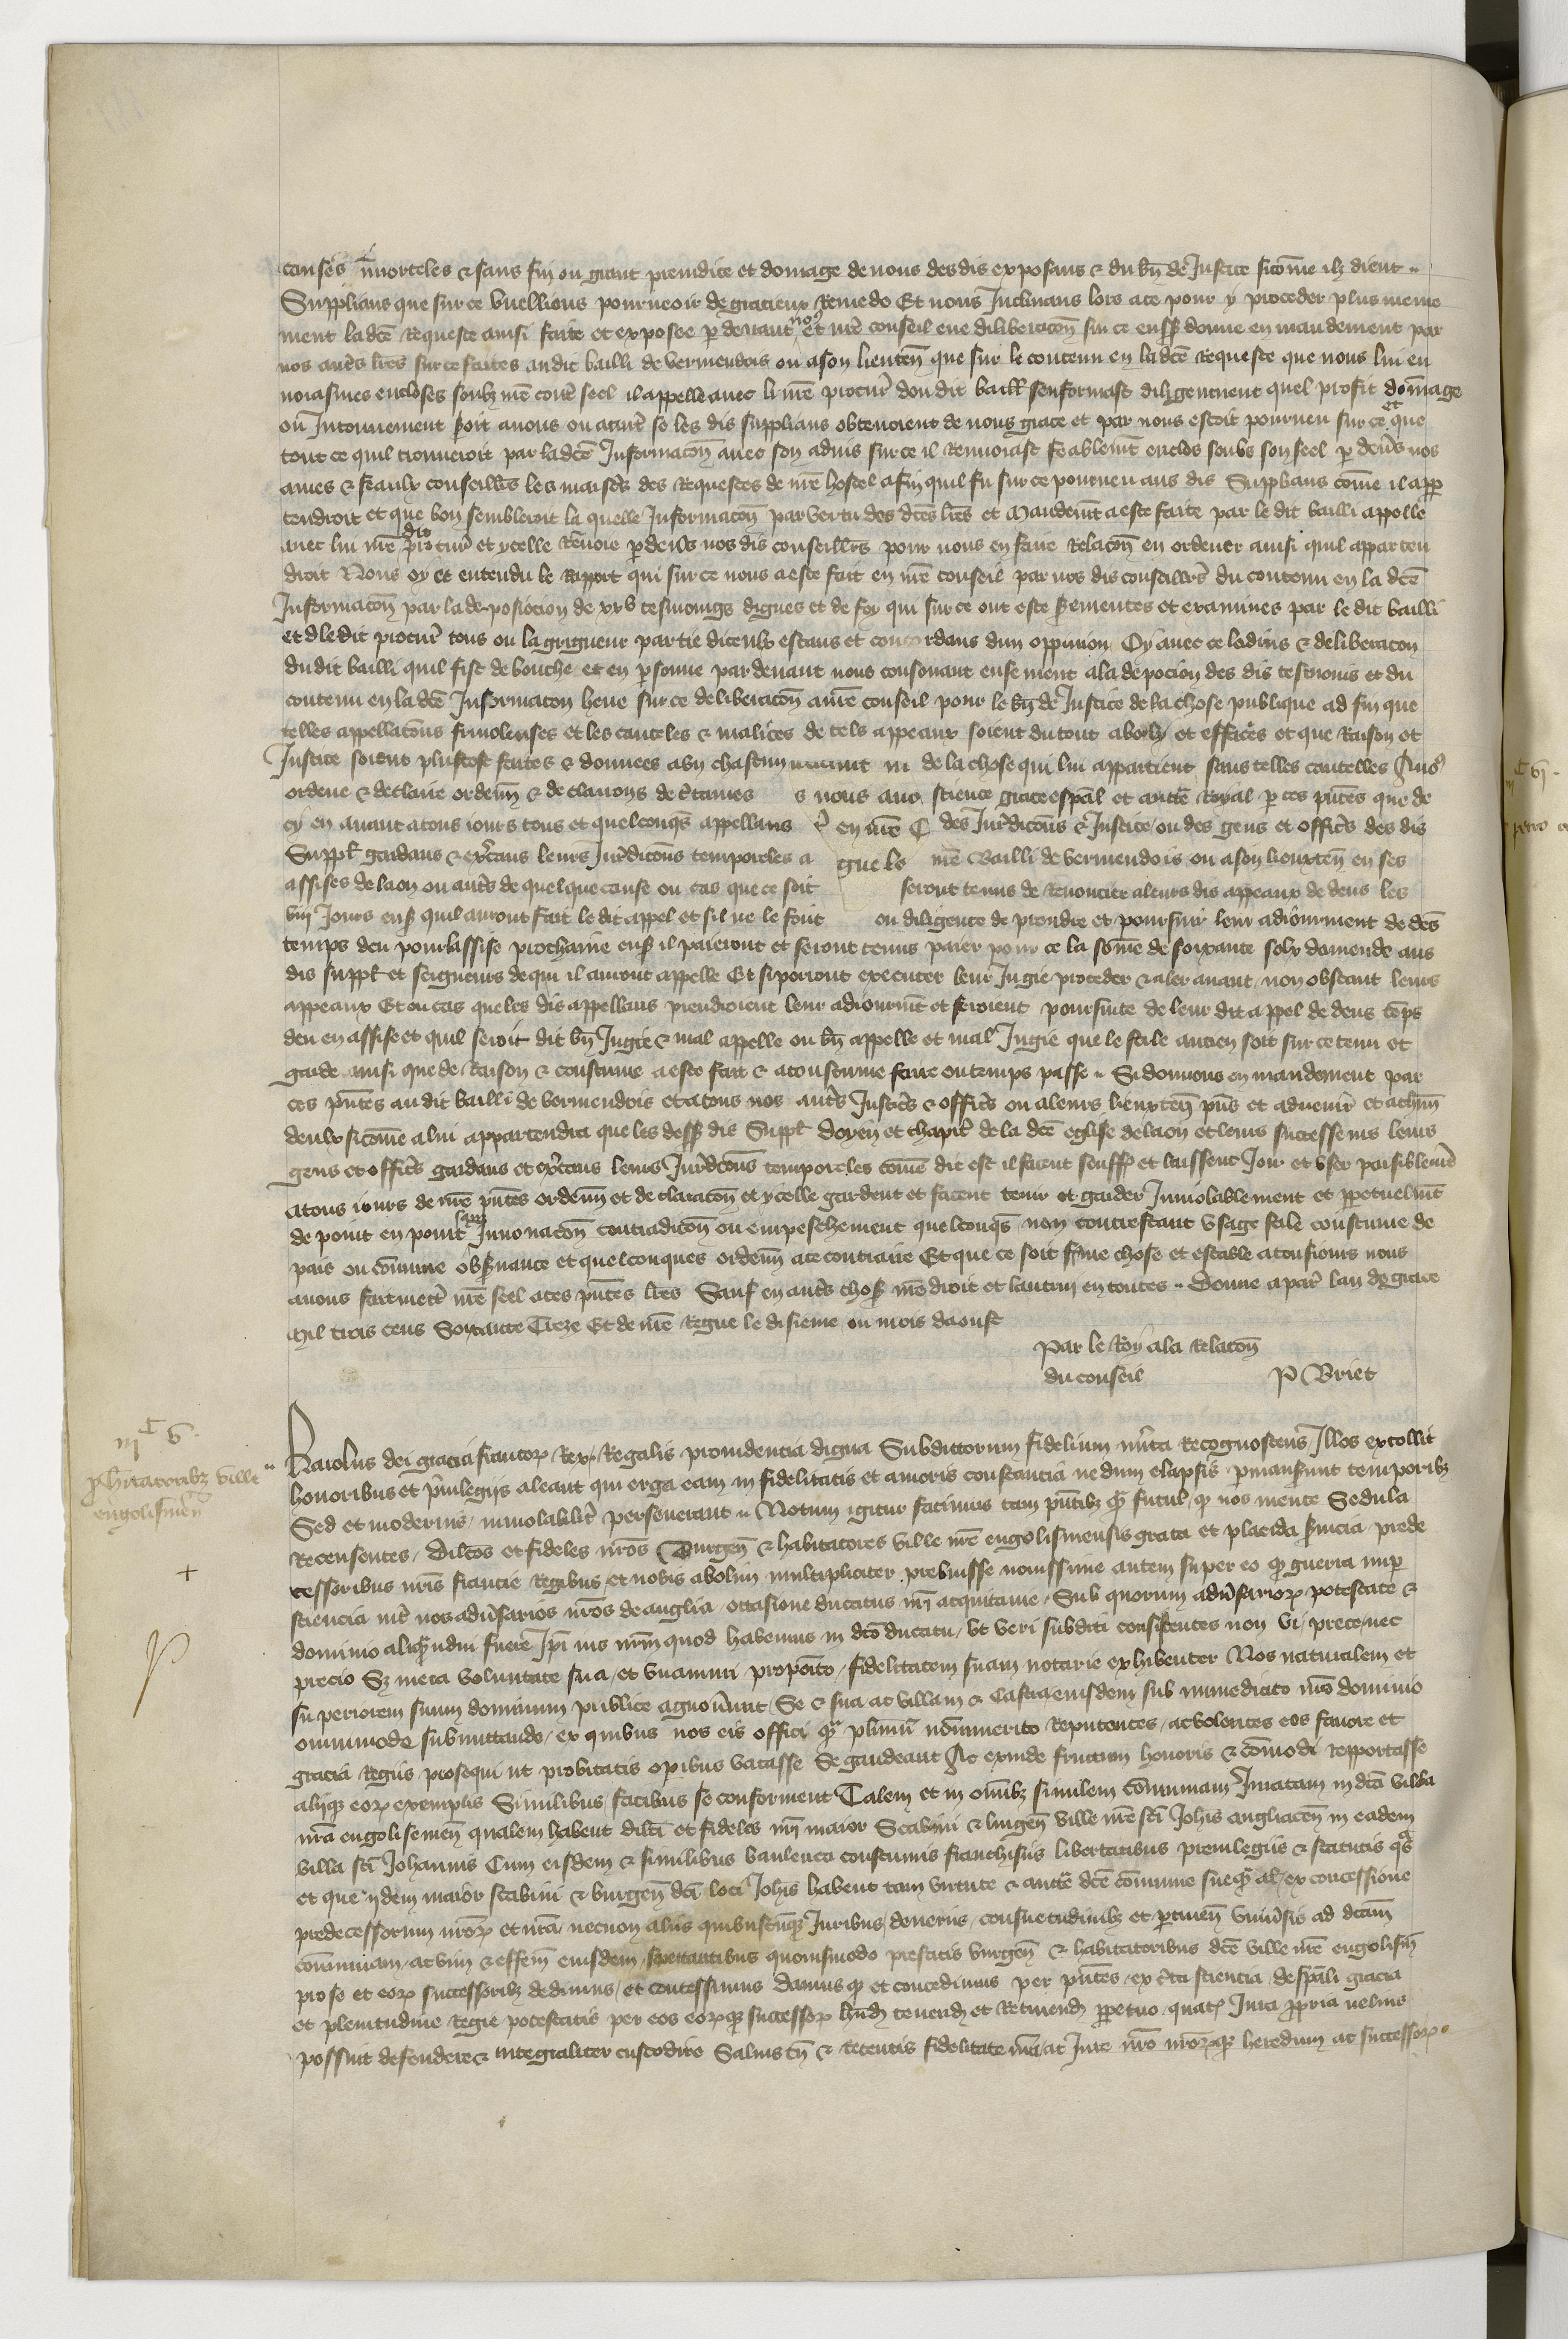 causes immorteles & sans fin ou grant preiudice et domage de nous desdis exposans & du bn de Justice sicome ilz dient
Supplians que sur ce vuellions pourueoir de gracieux Remede Et nous Inclinans lors a ce pour y proceder plus meure
ment ladce Requeste ainsi faite et exposee p deuant nos et nre conseil eue deliberacon sur ce donne en mandement par
nos autres lres sur ce faites audit bailli de vermendois ou a son lieuten que sur le contenu en ladce Requeste que nous lui en
uoiasmes encloses soubz nre contre seel il appelle auec li nre procur dou dit baill senformast diligenment quel profit domage
ou Intonnement seroit a nous ou a autre se les dis supplians obtenoient de nous grace et par nous estoit pourueu sur ce et que
tout ce quil trouueroit par ladce Informacon auec son aduis sur ce il Renuoiast feablement enclos soubs son seel p deuers nos
ames & feaulx conseillers les maistres des Requestes de nre hostel afin quil fu sur ce pourueu aus dis Supplians come il app
tendroit et que bon sembleroit la quelle Informacon par vertu des dces lres et Mandemt a este faite par le dit bailli appelle
auec lui nre dit procur et ycelle Renuoie p deuers nos dis conseillers pour nous en faire Relacon en ordener ainsi quil apparten
droit Nous oy et entendu le Raport qui sur ce nous a este fait en nre conseil par nos dis conseillers du contenu en la dce
Informacon par la deposicion de xxv tesmoings dignes et de foy qui sur ce ont este sermentes et examines par le dit bailli
et dledit procur tous ou la grigneur partie dicenlx estans et concordans dun oppinion Oy auec ce laduis & deliberacon
du dit bailli quil fist de bouche et en psonne par deuant nous consonant ensement a la depocion des dis tesmoins et du
contenu en ladce Informacon heue sur ce deliberacon a nre conseil pour le bn de Justice de la chose publique ad fin que
telles appellacons friuoleuses et les cauteles & malices de tels appeaux soient du tout aboly et effaces et que Raison et
Justice soient plustost faites & donnees a un chascun de la chose qui lui appartient sans telles cautelles Auons
ordene & declaire ordenn & declairons de certaines s nous auo science grace espal et aucte Royal p ces pntes que de
cy en auant a tous iours tous et quelconqs appellans en nre C des Jurdicons & Justice ou des gens et officrs des dis
Suppl gardans & exercans leurs Jurdicons temporeles a gue ls nre Bailli de vermendois ou a son lieuxten en ses
assises de laon ou autrs de quelque cause ou cas que ce soit seront tenus de Renoncier a leurs dis appeaux de dens les
viij Jours ens quil auront fait le dit appel et sil ne le font ou diligence de prendre et poursuir leur adiournment de dens
temps deu pour lassise prochaine ens il paieront et seront tenus paier pour ce la some de soixante solx damende aus
dis suppl et seigneurs de qui il auront appelle Et si porront executer leur Jugie proceder & aler auant non obstant leurs
appeaux Et ou cas que les dis appellans prendroient leur adiournmt et feroient poursuite de leur dit appel de dens temps
deu en assise et quil seroit dit bn Jugie & mal appelle ou bn appelle et mal Jugie que le stile ancien soit sur ce tenu et
garde ainsi que de Raison & coustume a este fait & acoustume faire ou temps passe Si donnons en mandement par
ces pntes au dit bailli de vermendois et a tous nos autrs Justicrs & officrs ou a leurs lieuxten pns et aduenir et a chun
deulx sicome a lui appartendra que les dess dis Suppl doyen et chapit de la dce eglise de laon et leurs successeurs leurs
gens et officrs gardans et exercans leurs Jurdicons temporeles come dit est il facent seuffr et laissent Joir et vser paisiblemt
a tous iours de nre pntes ordenn et declaracon et ycelle gardent et facent tenir et garder Inuiolablement et ppetuelmt
de point en point sans Innouacon contradicon ou empeschement quelconqs non contrestant vsage stile coustume de
pais ou comune obseruance et quelconques ordenn a ce contraire Et que ce soit ferme chose et estable a tousiours nous
auons fait mettr nre seel a ces pntes lres Sauf en autrs chos nre droit et lautrui en toutes Donne a par lan de grace
Mil trois cens Soixante Treze Et de nre Regne le disieme ou mois daoust
Par le Roy a la Relacon
du conseil P Briet
iijC v
p hitatoribz ville
engolismen
Karolus dei gracia francor Rex Regalis prouidencia digna Subditorum fidelium merita Recognoscens Illos extollit
honoribus et priuilegiis aleant qui erga eam in fidelitatis et amoris constancia nedum elapsis pmanserunt temporibz
Sed et modernis inuiolabilitr perseuerant Notum igitur facimus tam pntibz q futur q nos mente Sedula
Recensentes dilcos et fideles nros Burgen & habitatores ville nre engolismensis grata et placida seruicia prede
cessoribus nris francie Regibus et nobis abolim multipliciter prebuisse nouissime autem super eo q guerra nup
sciencia intr nos aduersarios nros de anglia occasione ducatus nri acquitanie Sub quorum aduersarior potestate &
dominio aliqndiu fuere Ipi ius nrm quod habemus in dco ducatu vt veri subditi consistentes non vi prece nec
precio Sz mera voluntate sua et vnanimi proposito fidelitatem suam notarie exhibenter Nos naturalem et
superiorem suum dominum publice agnouerunt Se & sua ac villam & castra eiusdem sub immediato nro dominio
omnimode submittendo ex quibus nos eis offici q plurimu non immerito Reputentes ac volentes eos fauore et
gracia Regiis prosequi ut probitatis opibus vacasse Se gaudeant Ac exinde fructum honoris & comodi repportasse
aliiq eor exemplis Similibus facibus se conforment Talem et in omibz similem comunam Juratam in dca villa
nra engolisemen qualem habent dilci et fideles nri maior Scabini & burgen ville nre sci Johis angliacen in eadem
villa sci Johannis Cum eisdem & similibus banleuca coustumis franchisiis libertatibus preuilegiis & statutis qs
et que iidem maior scabini & burgen dci loci Johis habent tam virtute & aucte dce comune sueq al ex concessione
predecessorum nror et nra necnon aliis quibuscunq Juribus deueriis consuetudinibz et ptinen vniuersis ad dcam
comunam ac vim & effcm eiusdem spectantibus quouismodo prefatis burgen & habitatoribus dce ville nre engolism
pro se et eor successoribz dedimus et concessimus damus q et concedimus per pntes ex cta sciencia de spali gracia
et plenitudine Regie potestatis per eos eorq successor hnd tenend et Retinend ppetuo quatr Jura ppria melius
possunt defendere & integraliter custodire Saluis tn & Retentis fidelitate nra ac Jure nro nrorq heredum ac successor